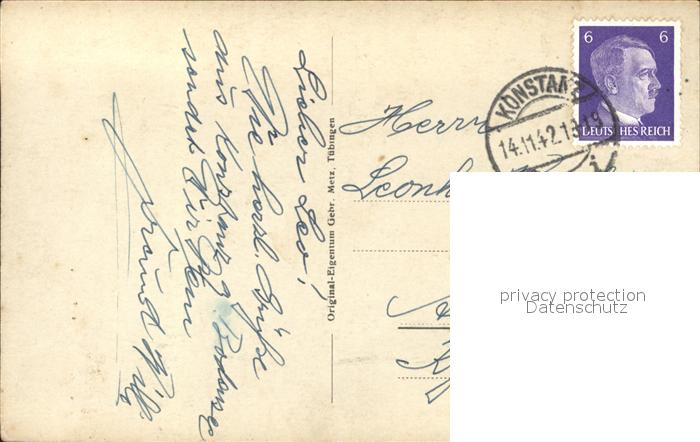 Lieber Leo!
Die herzl. Grüße
aus Konstanz a. Bodensee
sendet Dir Dein
Freund Willi
Original-Eigentum Gebr. Metz, Tübingen
6 6
DEUTSCHES REICH
KONSTANZ
14.11.42.
Herrn
privacy protection
Datenschutz